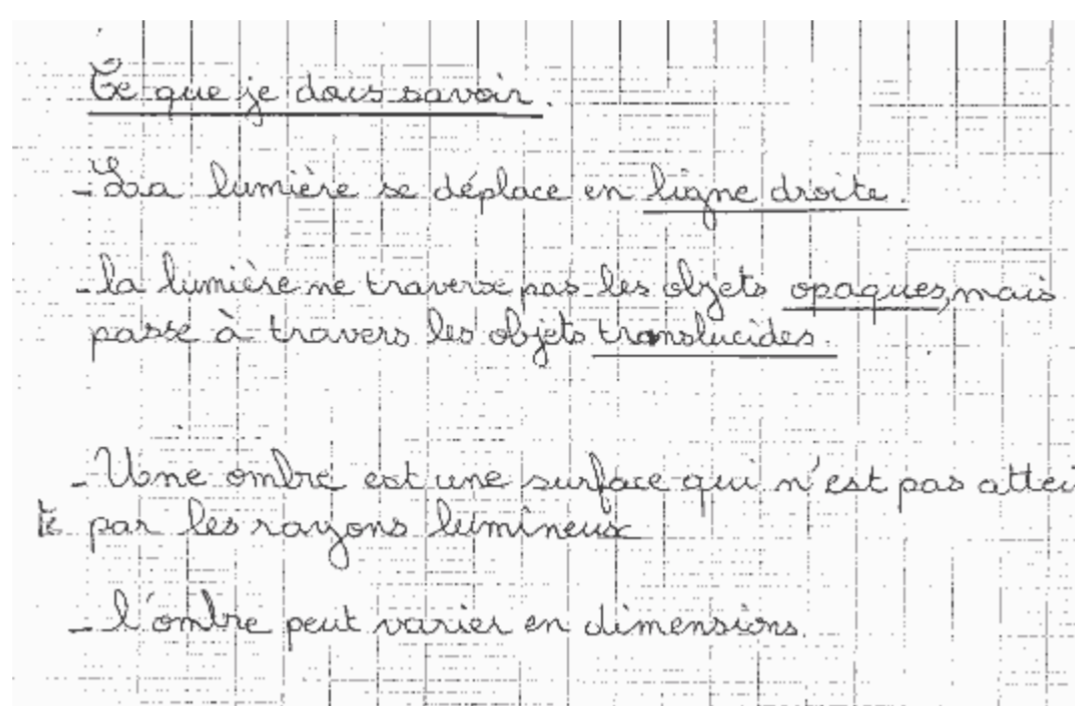 Ce que je dois savoir.
- La lumière se déplace en ligne droite.
- la lumière ne traverse pas les objets opaques, mais
passe à travers les objets translucides.
- Une ombre est une surface qui n'est pas attei
te par les rayons lumineux
- l'ombre peut varier en dimensions.